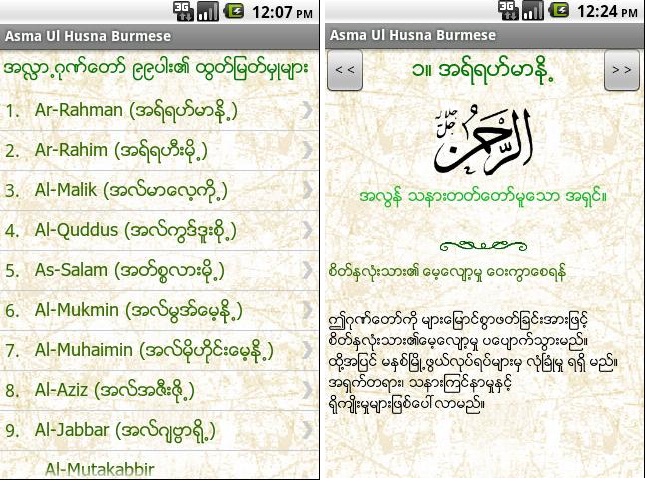 3G 12:07 PM
Asma Ul Husna Burmese
အလ္လာ့ဂုဏ်တော် ၉၉ပါး၏ ထွတ်မြတ်မှုများ
1. Ar-Rahman (အရ်ရဟ်မာန့ို)
2. Ar-Rahim (အရ်ရဟီးမို့)
3. Al-Malik (အလ်မာလေ့ကို့)
4. Al-Quddus (အလ်ကွဒ်ဒူးစို့)
5. As-Salam (အတ်စ္စလားမို့)
6. Al-Mukmin (အလ်မွအ်မေ့နို့)
7. Al-Muhaimin (အလ်မိုဟိုင်းမေ့နို့)
8. Al-Aziz (အလ်အဇီးဇို့)
9. Al-Jabbar (အလ်ဂျဗ္ဗာရို့)
Al-Mutakabbir
3G 12:24 PM
Asma Ul Husna Burmese
< < ၁။ အရ်ရဟ်မာန့ို > >
الرَّحْمٰنُ جل جلاله
အလွန် သနားတတ်တော်မူသော အရှင်။
စိတ်နှလုံးသား၏ မေ့လျော့မှု ဝေးကွာစေရန်
ဤဂုဏ်တော်ကို များမြောင်စွာဖတ်ခြင်းအားဖြင့်
စိတ်နှလုံးသား၏မေ့လျော့မှု ပပျောက်သွားမည်။
ထို့အပြင် မနစ်မြို့ဖွယ်လုပ်ရပ်များမှ လုံခြုံမှု ရရှိ မည်။
အရှက်တရား၊ သနားကြင်နာမှုနှင့်
ရိုကျိုးမှုများဖြစ်ပေါ်လာမည်။